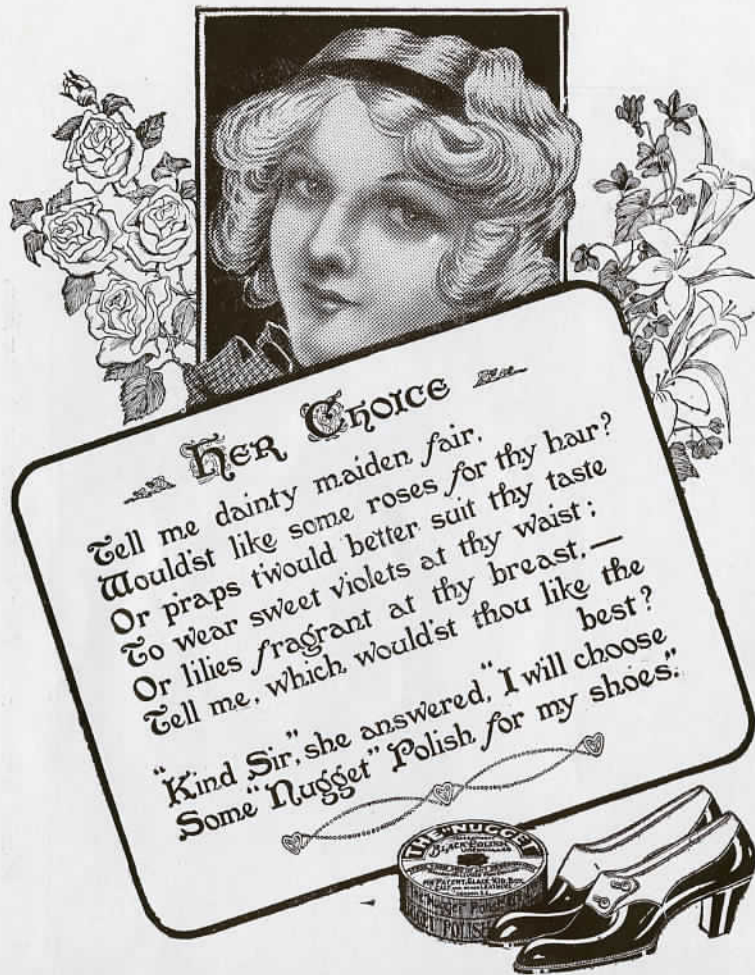 HER CHOICE
Tell me dainty maiden fair,
Would'st like some roses for thy hair?
Or praps t'would better suit thy taste
To wear sweet violets at thy waist;
Or lilies fragrant at thy breast,—
Tell me, which would'st thou like the
best?
"Kind Sir," she answered, "I will choose
Some "Nugget" Polish for my shoes."
THE "NUGGET"
BLACK POLISH